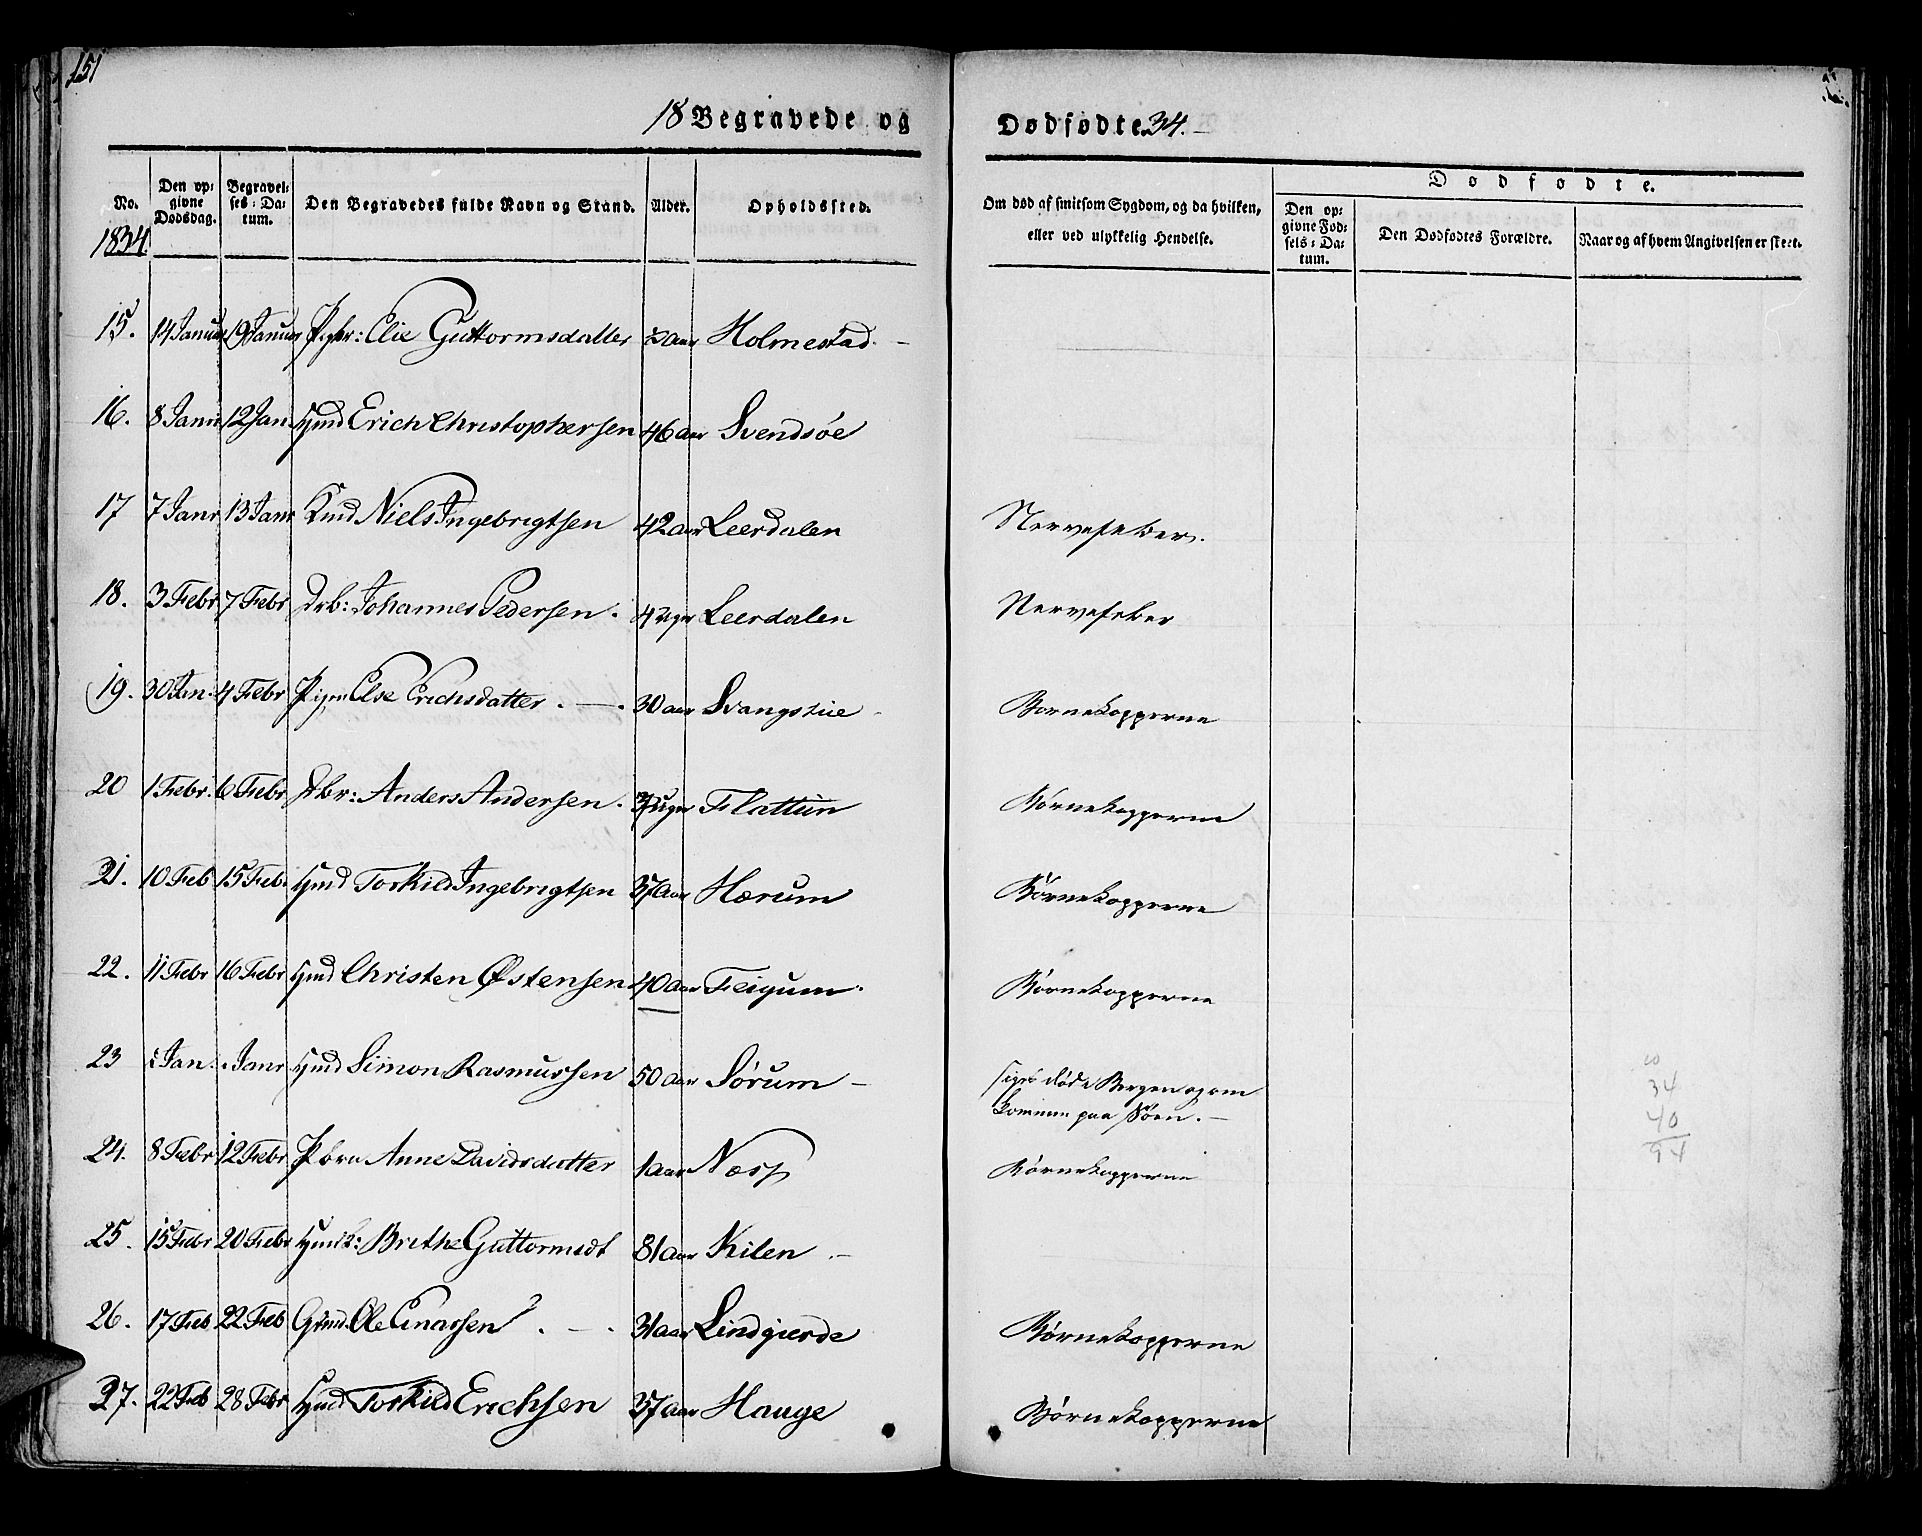 151
18 Begravede og Dødfødte 34.
No.
Den opgivne Dødsdag.
Begravelses-Datum.
Den Begravedes fulde Navn og Stand.
Alder.
Opholdssted.
Om død af smitsom Sygdom, og da hvilken, eller ved ulykkelig Hendelse.
Dødfødte.
Den opgivne Fødsels-Datum.
Den Dødfødtes Forældre.
Naar og af hvem Angivelsen er skeet.
1834
15. 14 Januar 19 Januar Elie Guttormsdatter aar Holmestad.
16. 8 Janu 12 Jan Gmd Erich Christophersen 46 aar Svendsøe
17 7 Janr 13 Janr Niels Ingebrigtsen 42 aar Leerdalen Nervefeber.
18. 3 Febr 7 Febr Drb: Johannes Pedersen. 4 uger Leerdalen Nervefeber
19. 30 Jan. 4 Febr Pigen Else Erichsdatter. 30 aar Svangstue Børnekopperne
20 1 Febr. 6 Febr Drbr: Anders Andersen. uger Flattun Børnekopperne
21. 10 Feb 15 Feb. Gmd Torkild Ingebrigtsen 37 aar Hærum Børnekopperne
22. 11 Febr 16 Febr Gmd Christen Østensen 40 aar Feigum. Børnekopperne
23 Jan. Janr Gmd Simon Rasmussen 50 aar Sørum - siges død i Bergen og om
kommen paa Søen. -
24. 8 Febr 12 Febr Anne Davidsdatter 1 aar Næss Børnekopperne
25. 15 Febr 20 Febr Gmdk: Brithe Guttormsdt 81 aar Kilen -
26. 17 Feb 22 Feb Ole Einarsen. 31 aar Lindgierde Børnekopperne
27. 22 Feb 28 Febr Gmd Torkild Erichsen 37 aar Hauge Børnekopperne
34
40
94